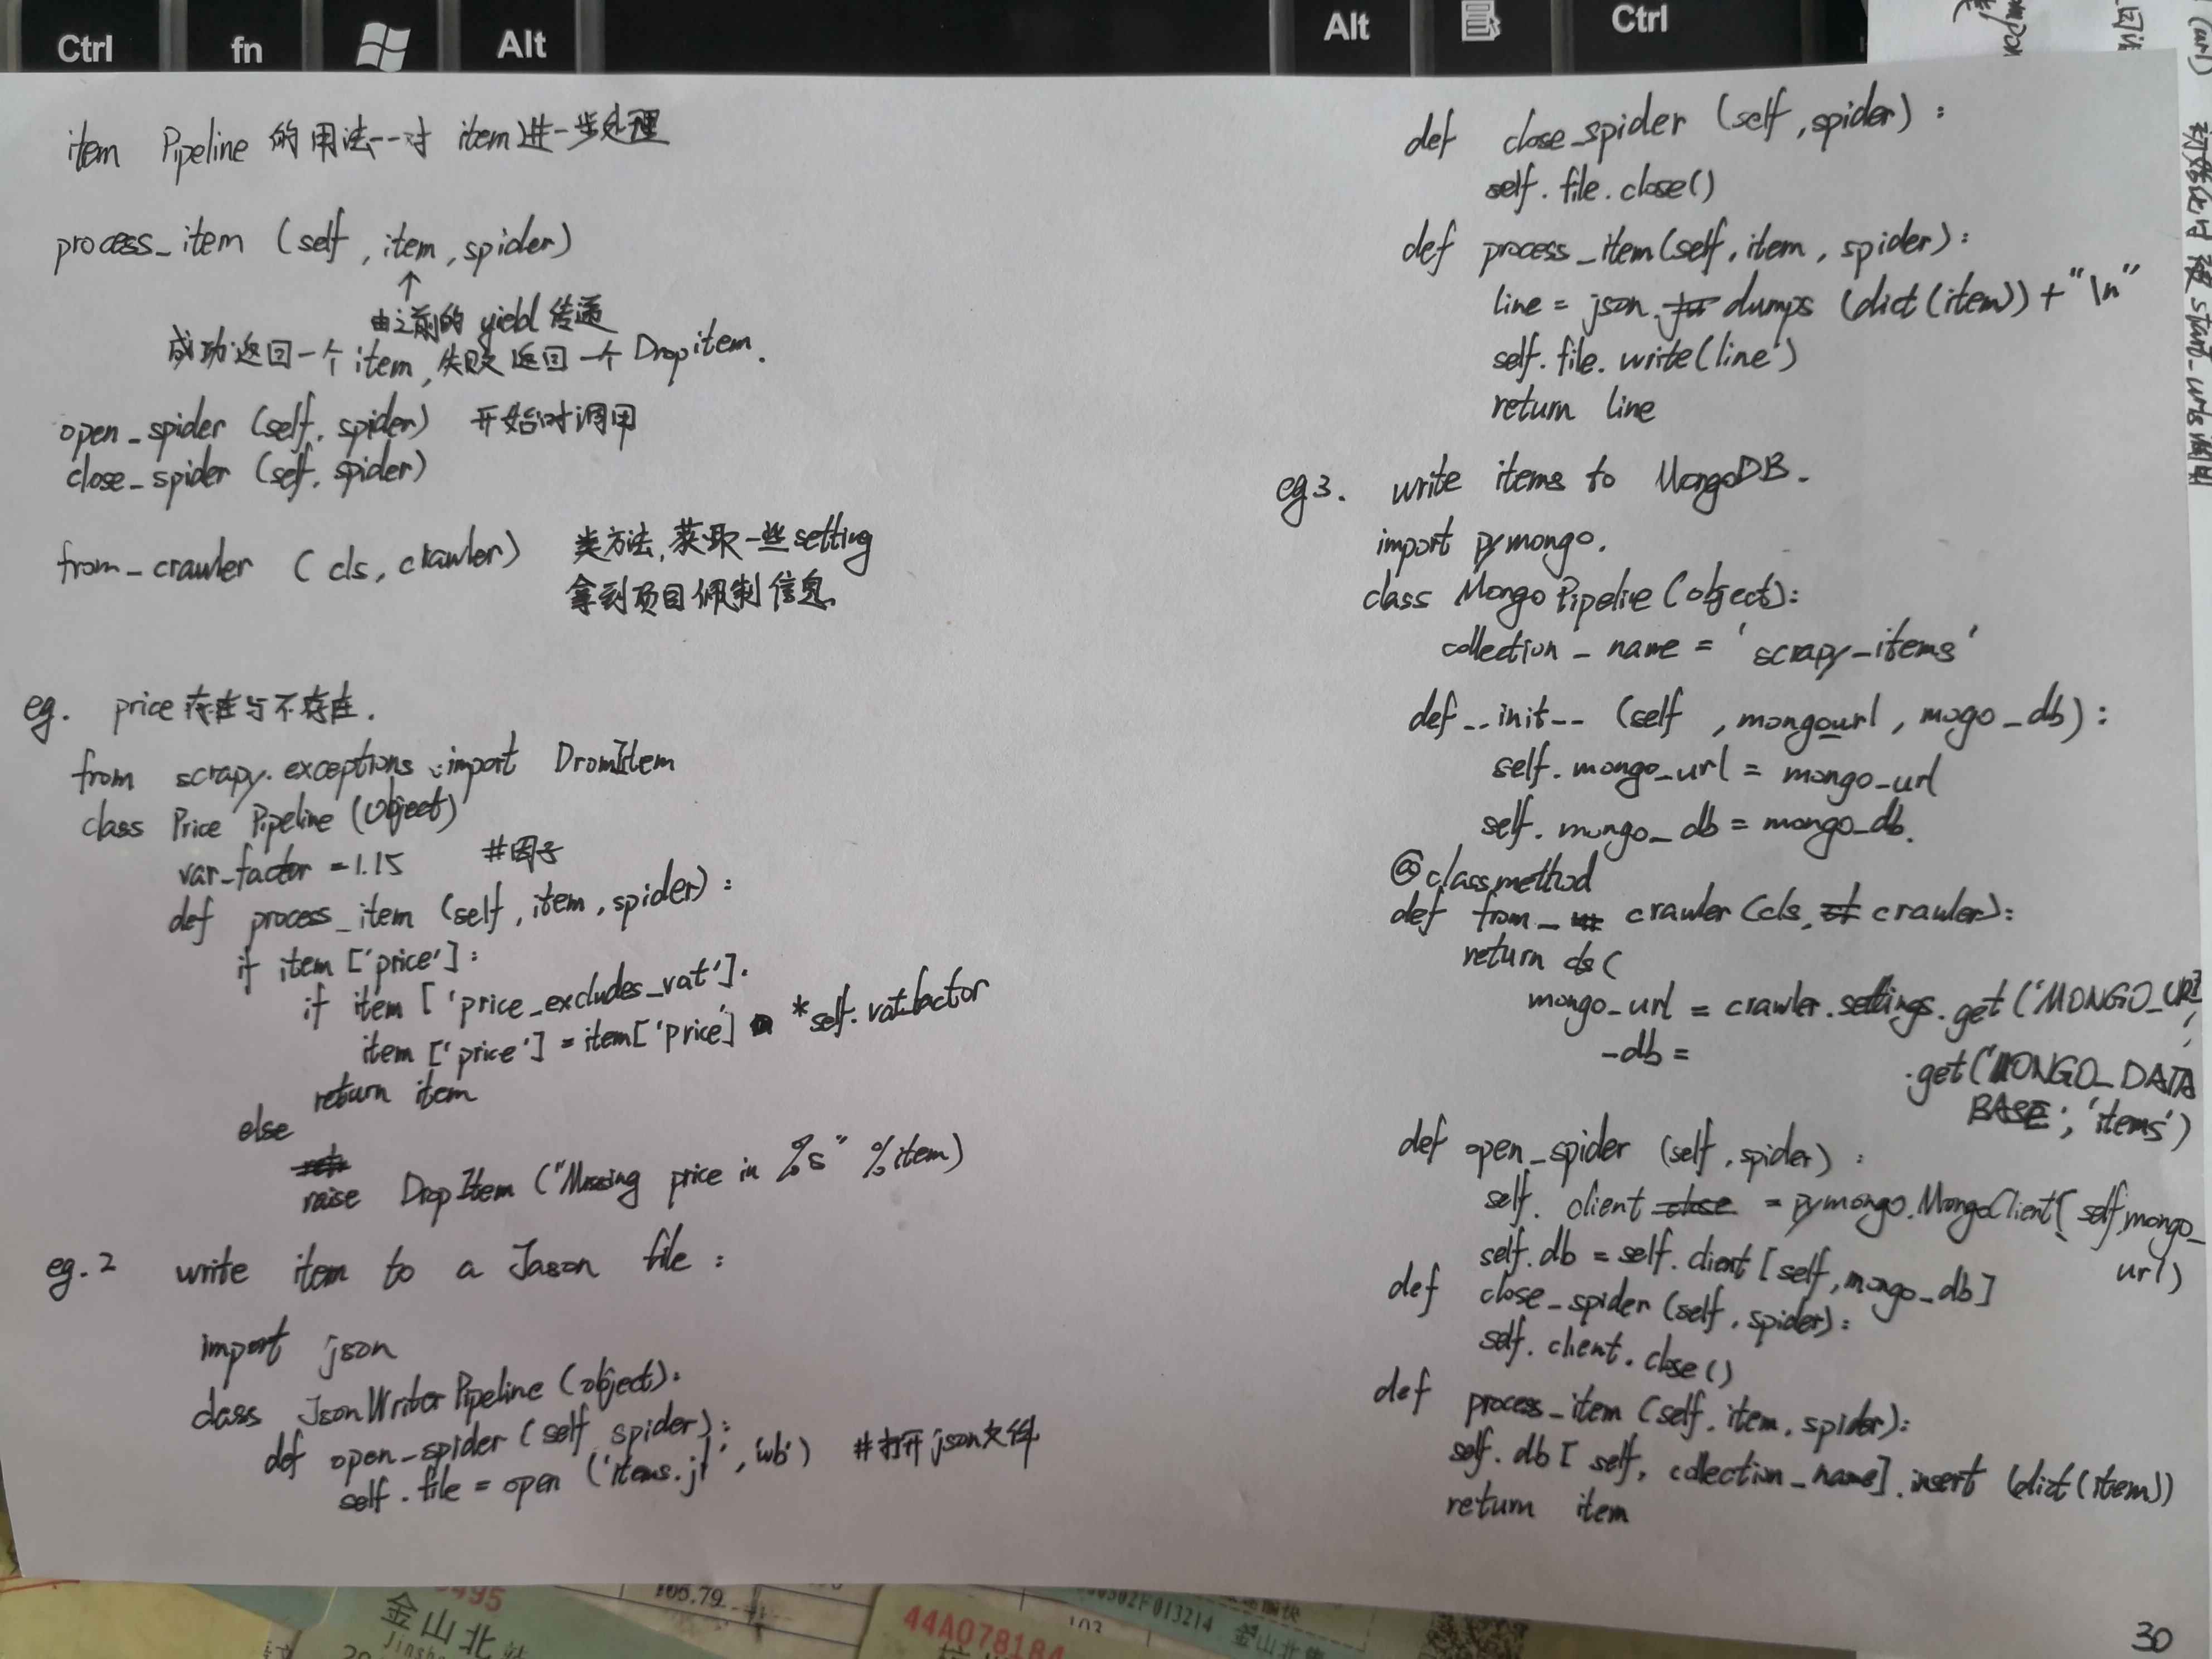 Ctrl
fn
Alt
Alt
Ctrl
item Pipeline 的用法--对 item进一步处理
process_item (self , item , spider)
↑
由之前的 yield 传递
成功返回一个 item, 失败返回一个 Dropitem.
open_spider (self, spider) 开始时调用
close_spider (self, spider)
from_crawler ( cls, crawler) 类方法, 获取一些setting
拿到项目佩制信息
eg. price 存在与不存在.
from scrapy. exceptions import DromItem
class Price Pipeline (Object)
var_factor = 1.15 #因子
def process_item (self , item , spider) :
if item ['price'] :
if item [ 'price_excludes_vat'].
item ['price'] = item['price'] * self. vat_factor
return item
else
raise DropItem ("Missing price in %s" %item)
eg. 2 write item to a Jason file :
import json
class JsonWriterPipeline (object):
def open_spider (self, spider):
self. file = open ('items.jl' , 'wb') #打开json文件
def close_spider (self , spider) :
self. file. close()
def process_item(self, item , spider):
line = json. dumps (dict (item)) + "\n"
self. file. write(line)
return line
eg 3. write items to MongoDB.
import pymongo.
class Mongo Pipeline (object):
collection_name = 'scrapy_items'
def __init__ (self , mongourl , mogo_db) :
self. mongo_url = mongo_url
self. mongo_db = mongo_db.
@classmethod
def from_ crawler (cls, crawler):
return cls (
mongo_url = crawler. settings. get ('MONGO_URI
,
-db = .get('MONGO_DATA
BASE', 'items')
def open_spider (self , spider) :
self. client = pymongo. MongoClient( self.mongo_
url)
self. db = self. client [self, mongo_db]
def close_spider (self , spider):
self. client. close ()
def process_item (self, item, spider):
self. db [ self, collection_name] . insert (dict (item))
return item
30
(url)
初始化时 start_urls 调用
495
金山北
¥65.79
44A078184
013214
金山北